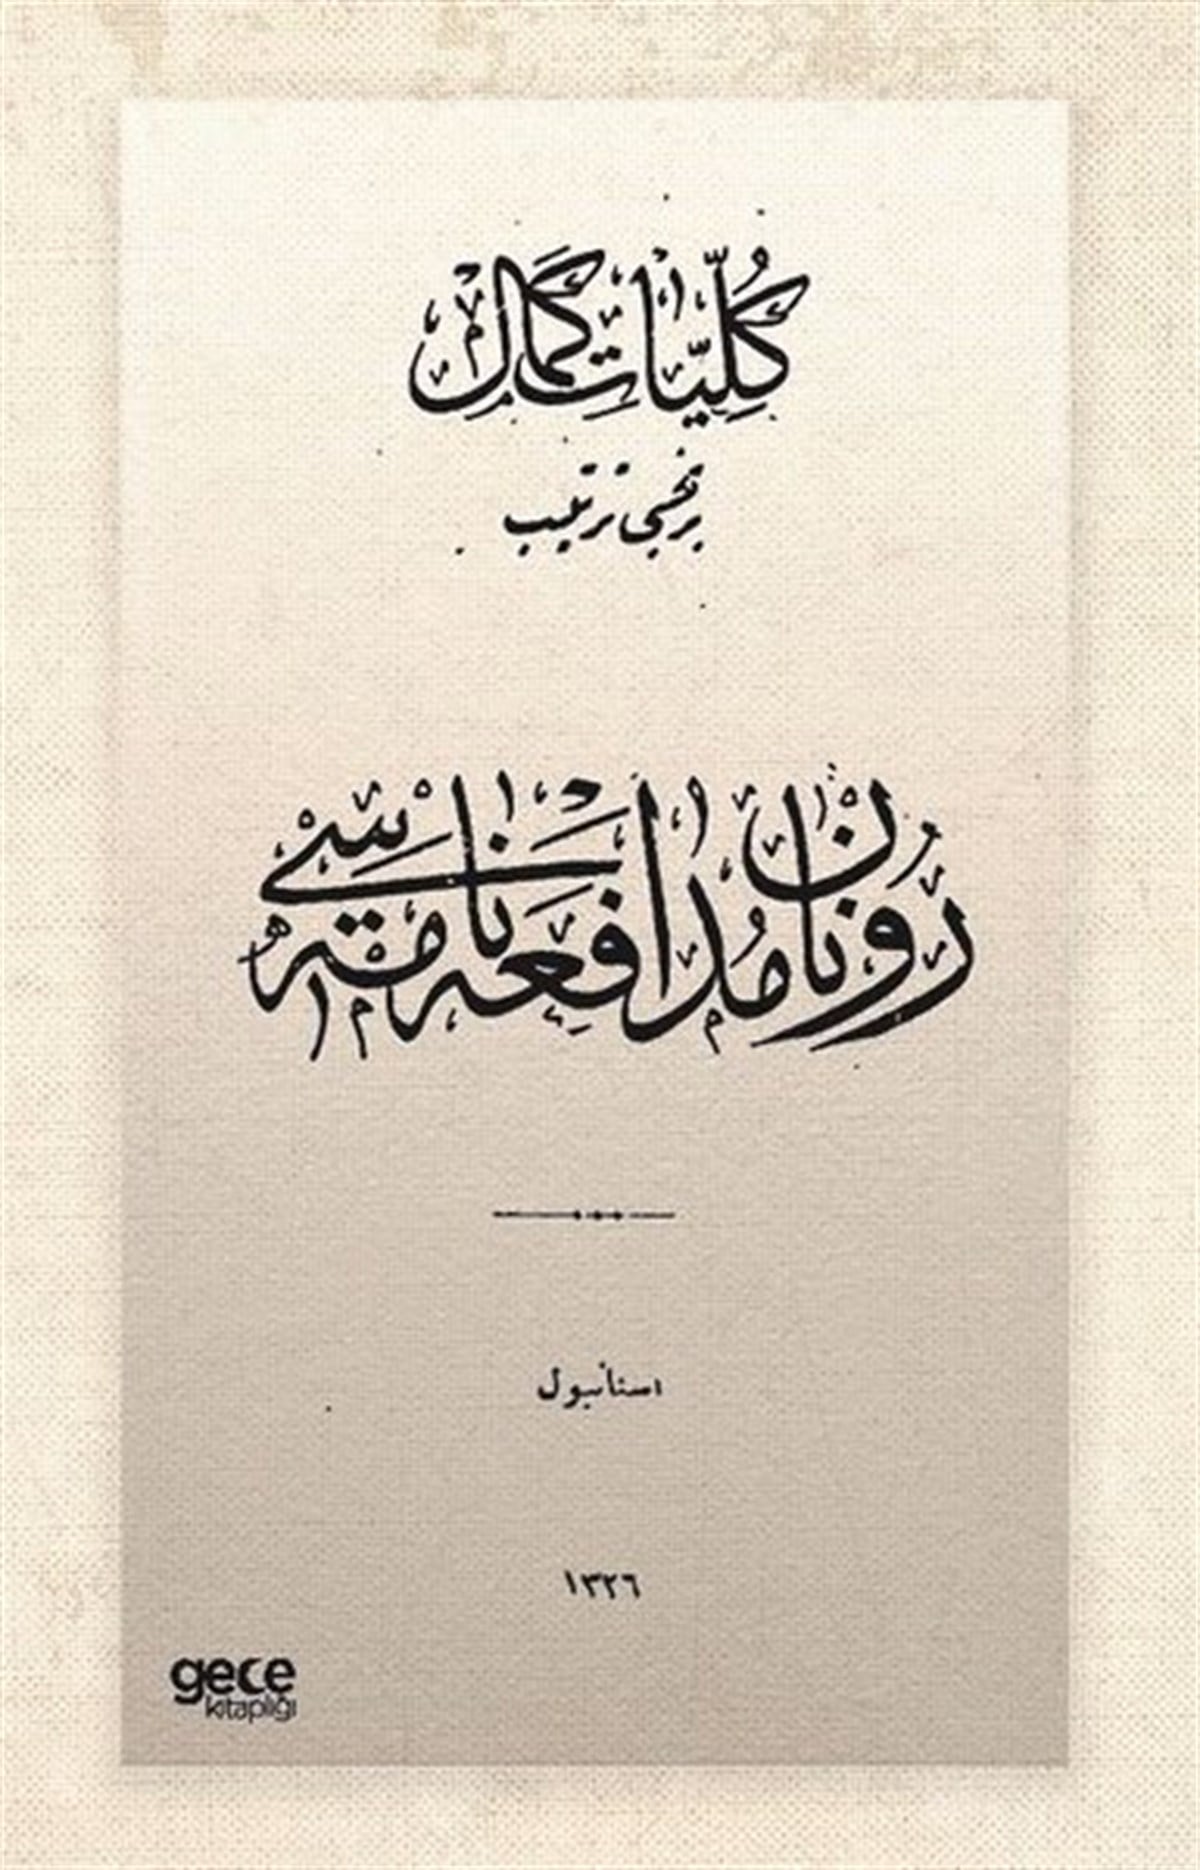 كُلِّيَّاتِ كَمَال
برنجی ترتیب
رونان مدافعه نامه سی
استانبول
١٣٢٦
gece
kitaplığı